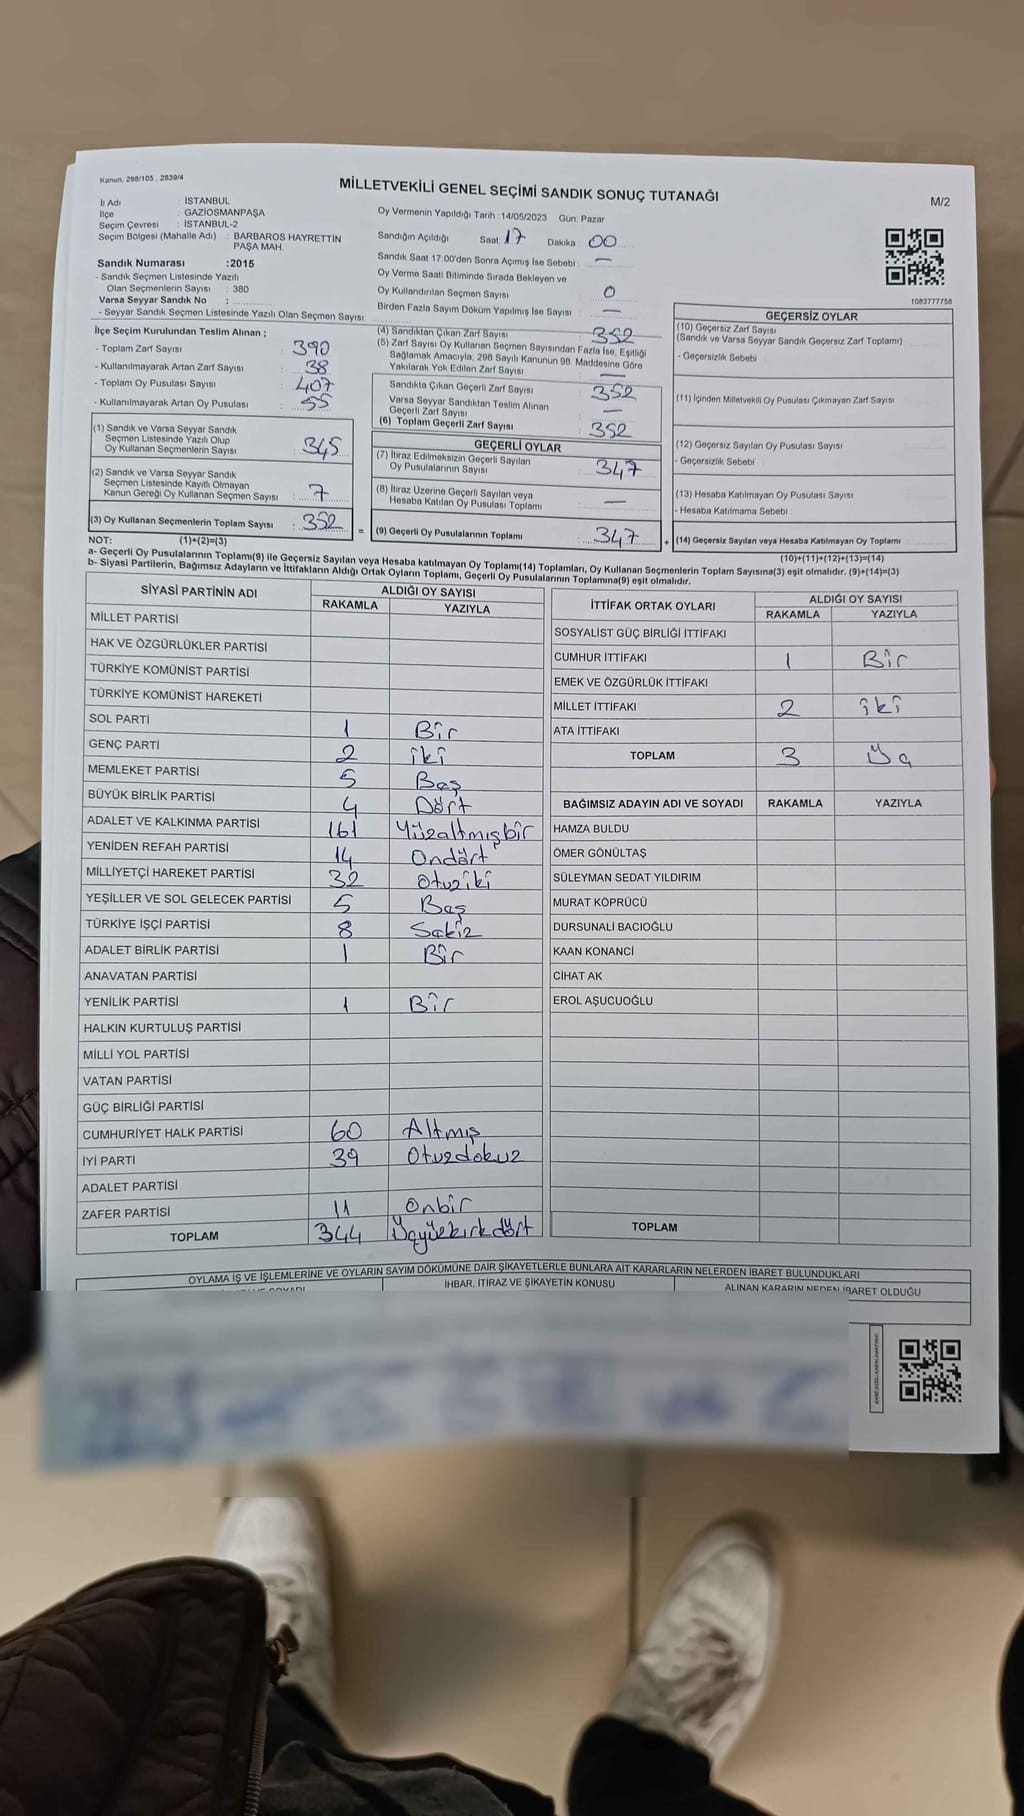 Kanun: 298/105 , 2839/4
MİLLETVEKİLİ GENEL SEÇİMİ SANDIK SONUÇ TUTANAĞI
M/2
İl Adı : İSTANBUL
İlçe : GAZİOSMANPAŞA
Seçim Çevresi : İSTANBUL-2
Seçim Bölgesi (Mahalle Adı) : BARBAROS HAYRETTİN
PAŞA MAH.
Sandık Numarası :2015
- Sandık Seçmen Listesinde Yazılı
Olan Seçmenlerin Sayısı : 380
Varsa Seyyar Sandık No :
- Seyyar Sandık Seçmen Listesinde Yazılı Olan Seçmen Sayısı:
Oy Vermenin Yapıldığı Tarih :14/05/2023 Gün: Pazar
Sandığın Açıldığı Saat: 17 Dakika : 00
Sandık Saat 17.00'den Sonra Açımış İse Sebebi : —
Oy Verme Saati Bitiminde Sırada Bekleyen ve
Oy Kullandırılan Seçmen Sayısı : 0
Birden Fazla Sayım Döküm Yapılmış İse Sayısı : —
1083777758
İlçe Seçim Kurulundan Teslim Alınan ;
- Toplam Zarf Sayısı : 390
- Kullanılmayarak Artan Zarf Sayısı : 38
- Toplam Oy Pusulası Sayısı : 407
- Kullanılmayarak Artan Oy Pusulası : 55
(1) Sandık ve Varsa Seyyar Sandık
Seçmen Listesinde Yazılı Olup
Oy Kullanan Seçmenlerin Sayısı : 345
(2) Sandık ve Varsa Seyyar Sandık
Seçmen Listesinde Kayıtlı Olmayan
Kanun Gereği Oy Kullanan Seçmen Sayısı : 7
(3) Oy Kullanan Seçmenlerin Toplam Sayısı : 352
(4) Sandıktan Çıkan Zarf Sayısı : 352
(5) Zarf Sayısı Oy Kullanan Seçmen Sayısından Fazla İse, Eşitliği
Sağlamak Amacıyla, 298 Sayılı Kanunun 98. Maddesine Göre
Yakılarak Yok Edilen Zarf Sayısı : —
Sandıkta Çıkan Geçerli Zarf Sayısı : 352
Varsa Seyyar Sandıktan Teslim Alınan
Geçerli Zarf Sayısı : —
(6) Toplam Geçerli Zarf Sayısı : 352
GEÇERLİ OYLAR
(7) İtiraz Edilmeksizin Geçerli Sayılan
Oy Pusulalarının Sayısı : 347
(8) İtiraz Üzerine Geçerli Sayılan veya
Hesaba Katılan Oy Pusulası Toplamı : —
= (9) Geçerli Oy Pusulalarının Toplamı : 347 +
GEÇERSİZ OYLAR
(10) Geçersiz Zarf Sayısı
(Sandık ve Varsa Seyyar Sandık Geçersiz Zarf Toplamı) :
- Geçersizlik Sebebi :
(11) İçinden Milletvekili Oy Pusulası Çıkmayan Zarf Sayısı :
(12) Geçersiz Sayılan Oy Pusulası Sayısı :
- Geçersizlik Sebebi :
(13) Hesaba Katılmayan Oy Pusulası Sayısı :
- Hesaba Katılmama Sebebi :
(14) Geçersiz Sayılan veya Hesaba Katılmayan Oy Toplamı :
NOT: (1)+(2)=(3)
(10)+(11)+(12)+(13)=(14)
a- Geçerli Oy Pusulalarının Toplamı(9) ile Geçersiz Sayılan veya Hesaba katılmayan Oy Toplamı(14) Toplamları, Oy Kullanan Seçmenlerin Toplam Sayısına(3) eşit olmalıdır. (9)+(14)=(3)
b- Siyasi Partilerin, Bağımsız Adayların ve İttifakların Aldığı Ortak Oyların Toplamı, Geçerli Oy Pusulalarının Toplamına(9) eşit olmalıdır.
SİYASİ PARTİNİN ADI ALDIĞI OY SAYISI
RAKAMLA YAZIYLA
MİLLET PARTİSİ
HAK VE ÖZGÜRLÜKLER PARTİSİ
TÜRKİYE KOMÜNİST PARTİSİ
TÜRKİYE KOMÜNİST HAREKETİ
SOL PARTİ 1 Bir
GENÇ PARTİ 2 iki
MEMLEKET PARTİSİ 5 Beş
BÜYÜK BİRLİK PARTİSİ 4 Dört
ADALET VE KALKINMA PARTİSİ 161 Yüzaltmışbir
YENİDEN REFAH PARTİSİ 14 Ondört
MİLLİYETÇİ HAREKET PARTİSİ 32 Otuziki
YEŞİLLER VE SOL GELECEK PARTİSİ 5 Beş
TÜRKİYE İŞÇİ PARTİSİ 8 Sekiz
ADALET BİRLİK PARTİSİ 1 Bir
ANAVATAN PARTİSİ
YENİLİK PARTİSİ 1 Bir
HALKIN KURTULUŞ PARTİSİ
MİLLİ YOL PARTİSİ
VATAN PARTİSİ
GÜÇ BİRLİĞİ PARTİSİ
CUMHURİYET HALK PARTİSİ 60 Altmış
İYİ PARTİ 39 Otuzdokuz
ADALET PARTİSİ
ZAFER PARTİSİ 11 Onbir
TOPLAM 344 Üçyüzkırkdört
İTTİFAK ORTAK OYLARI ALDIĞI OY SAYISI
RAKAMLA YAZIYLA
SOSYALİST GÜÇ BİRLİĞİ İTTİFAKI
CUMHUR İTTİFAKI 1 Bir
EMEK VE ÖZGÜRLÜK İTTİFAKI
MİLLET İTTİFAKI 2 iki
ATA İTTİFAKI
TOPLAM 3 Üç
BAĞIMSIZ ADAYIN ADI VE SOYADI RAKAMLA YAZIYLA
HAMZA BULDU
ÖMER GÖNÜLTAŞ
SÜLEYMAN SEDAT YILDIRIM
MURAT KÖPRÜCÜ
DURSUNALİ BACIOĞLU
KAAN KONANCİ
CİHAT AK
EROL AŞUCUOĞLU
TOPLAM
OYLAMA İŞ VE İŞLEMLERİNE VE OYLARIN SAYIM DÖKÜMÜNE DAİR ŞİKAYETLERLE BUNLARA AİT KARARLARIN NELERDEN İBARET BULUNDUKLARI
İHBAR, İTİRAZ VE ŞİKAYETİN KONUSU ALINAN KARARIN NEDEN İBARET OLDUĞU